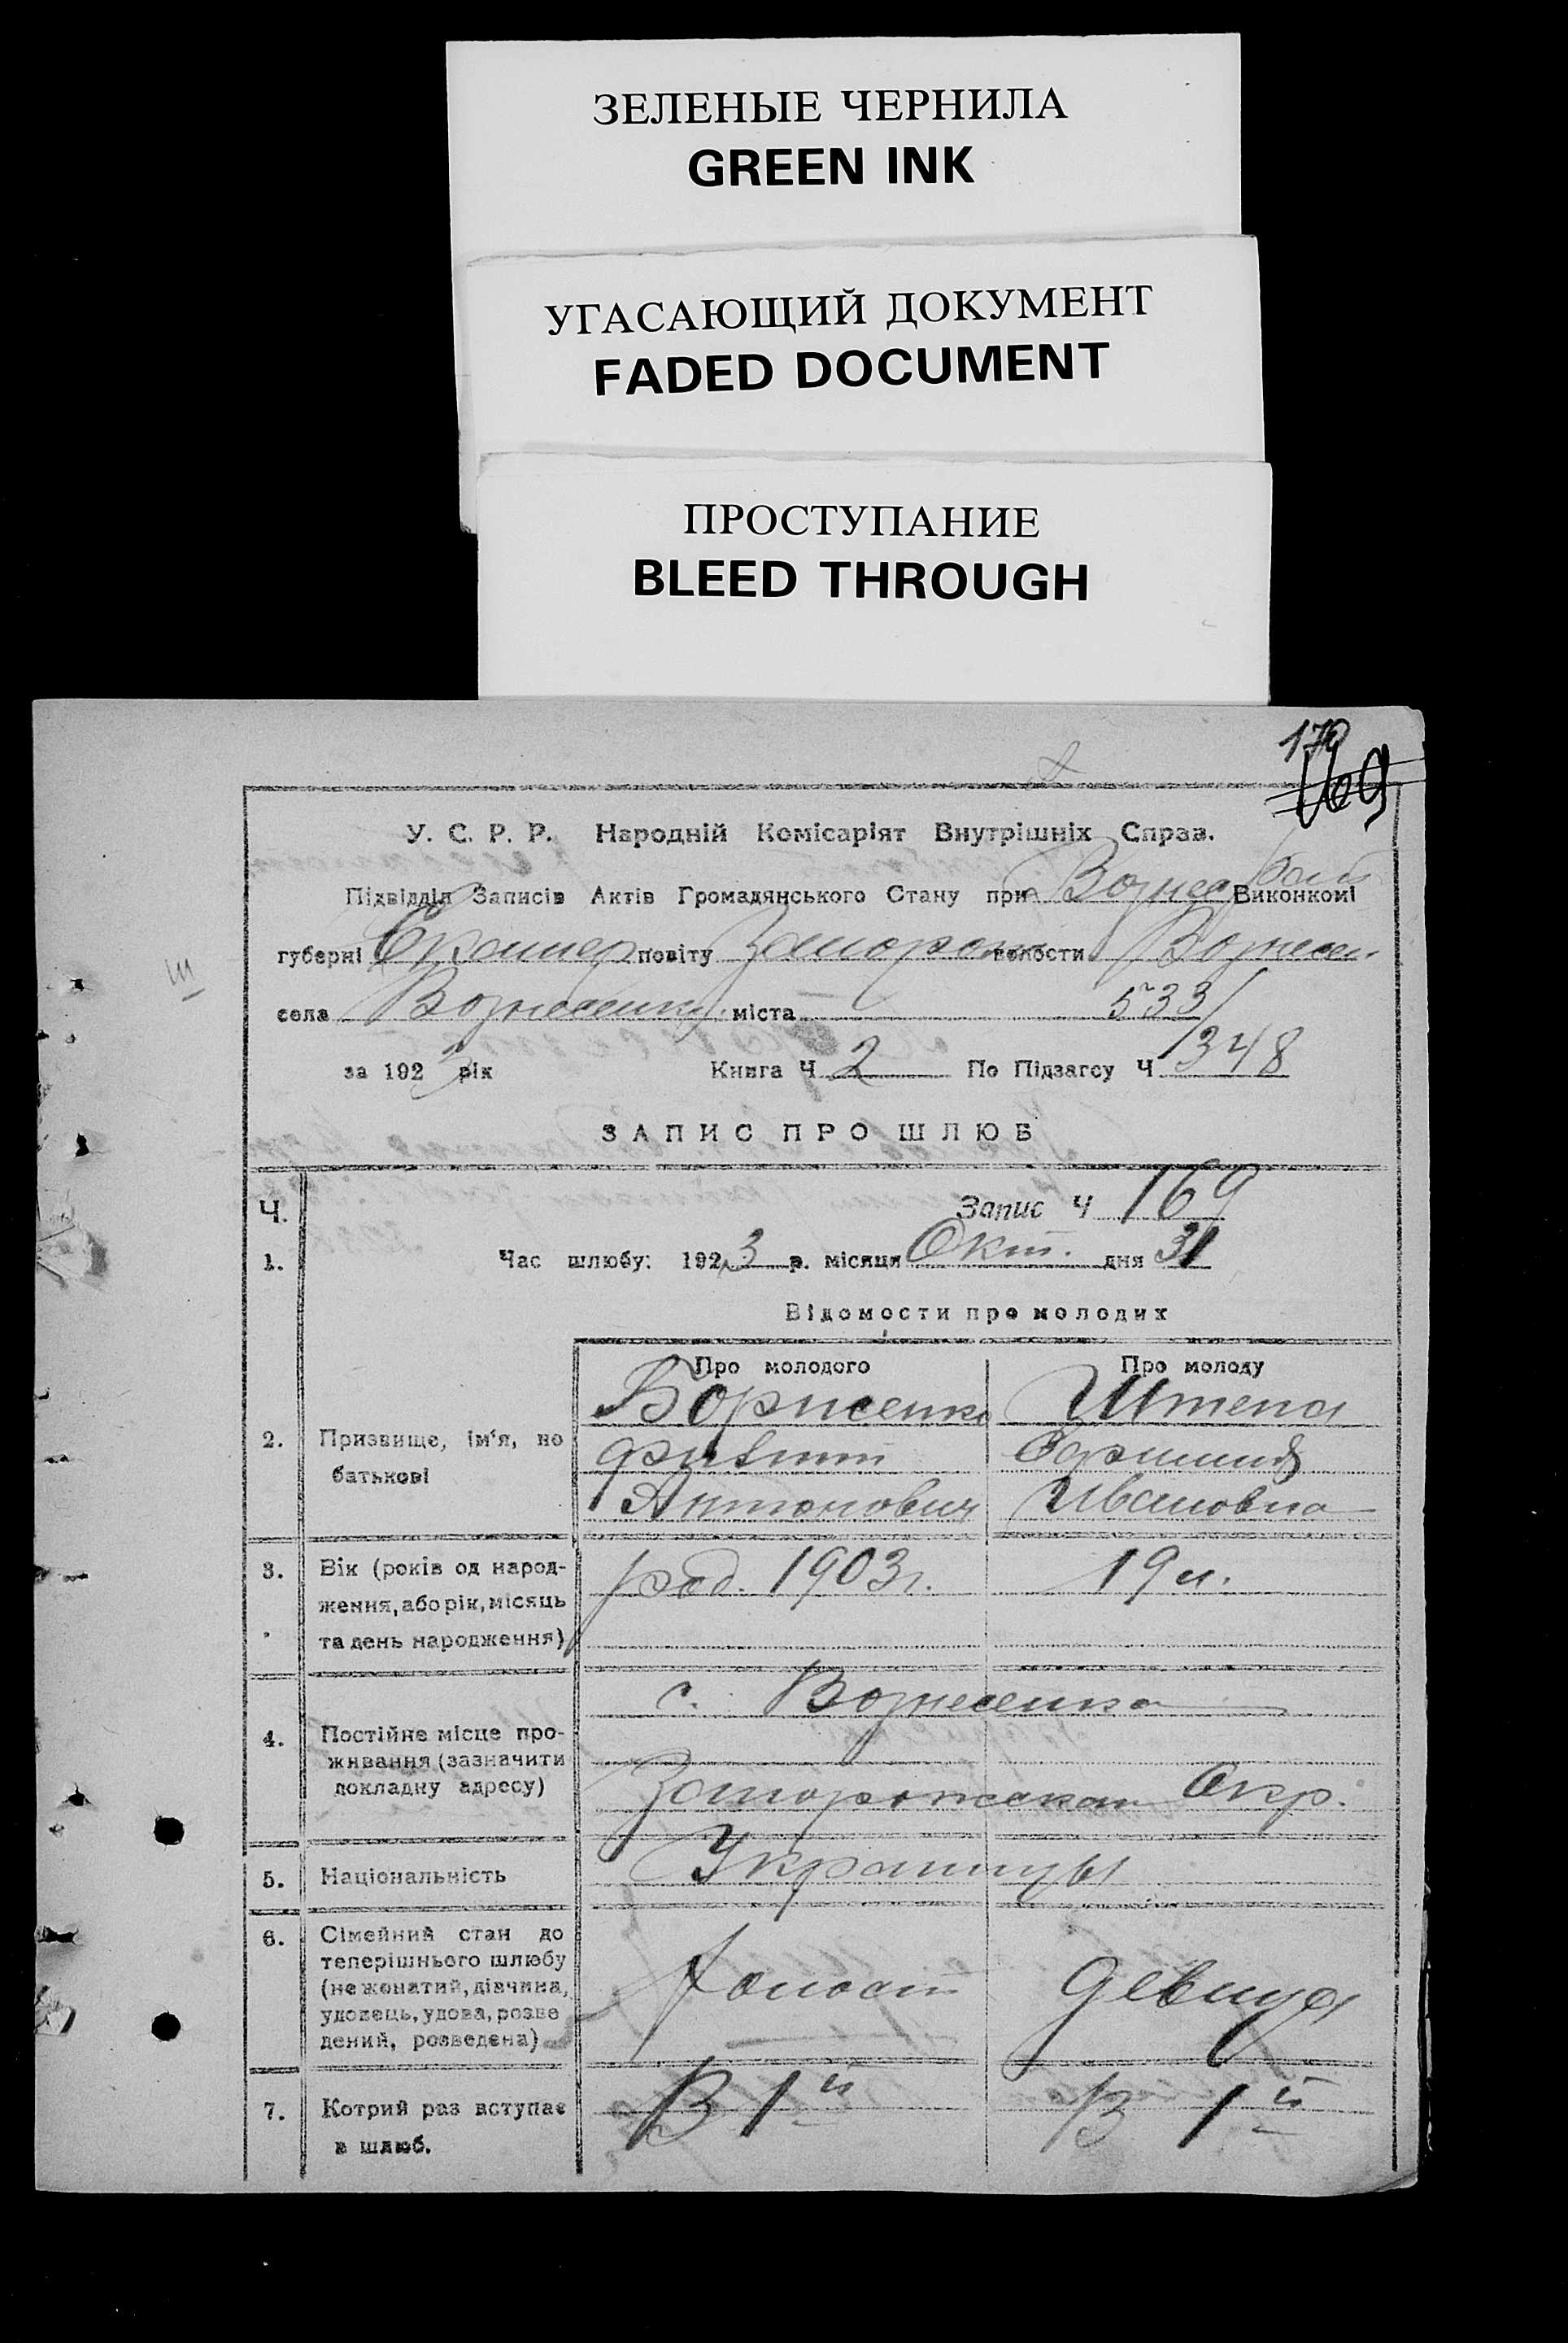 ЗЕЛЕНЫЕ ЧЕРНИЛА
GREEN INK
УГАСАЮЩИЙ ДОКУМЕНТ
FADED DOCUMENT
ПРОСТУПАНИЕ
BLEED THROUGH
170
169
У. С. Р. Р. Народній Комісаріят Внутрішніх Справ.
Підвідділ Записів Актів Громадянського Стану при Вознес Виконкомі
губерні повіту Запорож волости Вознесен
села Вознесенку міста 533/
за 1923 рік Книга Ч 2 По Підзагсу Ч 348
ЗАПИС ПРО ШЛЮБ
Ч. Запис Ч 169
1. Час шлюбу: 1923 р. місяця Окт. дня 31
Відомости про молодих
Про молодого Про молоду
Борисенко Штепа
2. Призвище, ім'я, по
батькові
Антонович Ивановна
3. Вік (років од народ- род. 1903 г. 19 л.
ження, або рік, місяць
та день народження)
с. Вознесенка
4. Постійне місце про-
живання (зазначити
докладну адресу) Запорожская Окр.
5. Національність Украинцы
6. Сімейний стан до
теперішнього шлюбу
(не жонатий, дівчина, холост девица
удовець, удова, розве
дений, розведена)
7. Котрий раз вступає В 1й В 1й
в шлюб.